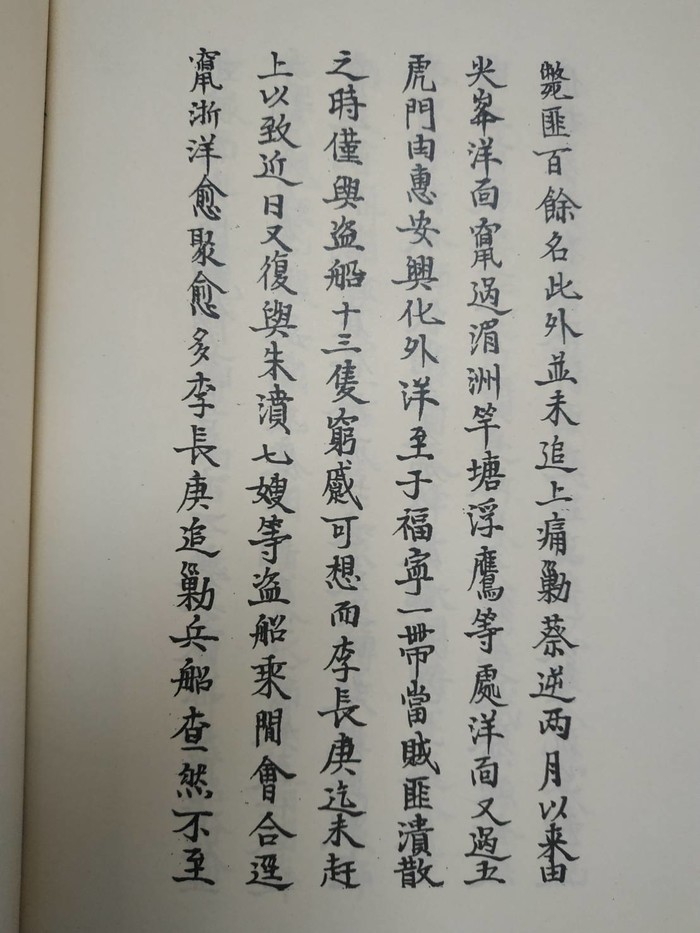 斃匪百餘名此外並未追上痛勦蔡逆两月以来由
尖峯洋面竄過湄洲竿塘浮鷹等處洋面又過五
虎門由惠安興化外洋至于福寧一帶當賊匪潰散
之時僅與盗船十三隻窮蹙可想而李長庚迄未赶
上以致近日又復與朱濆七嫂等盗船乘間會合逕
竄浙洋愈聚愈多李長庚追勦兵船查然不至